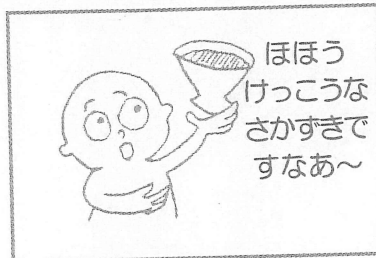 ほほう
けっこうな
さかずきで
すなあ～